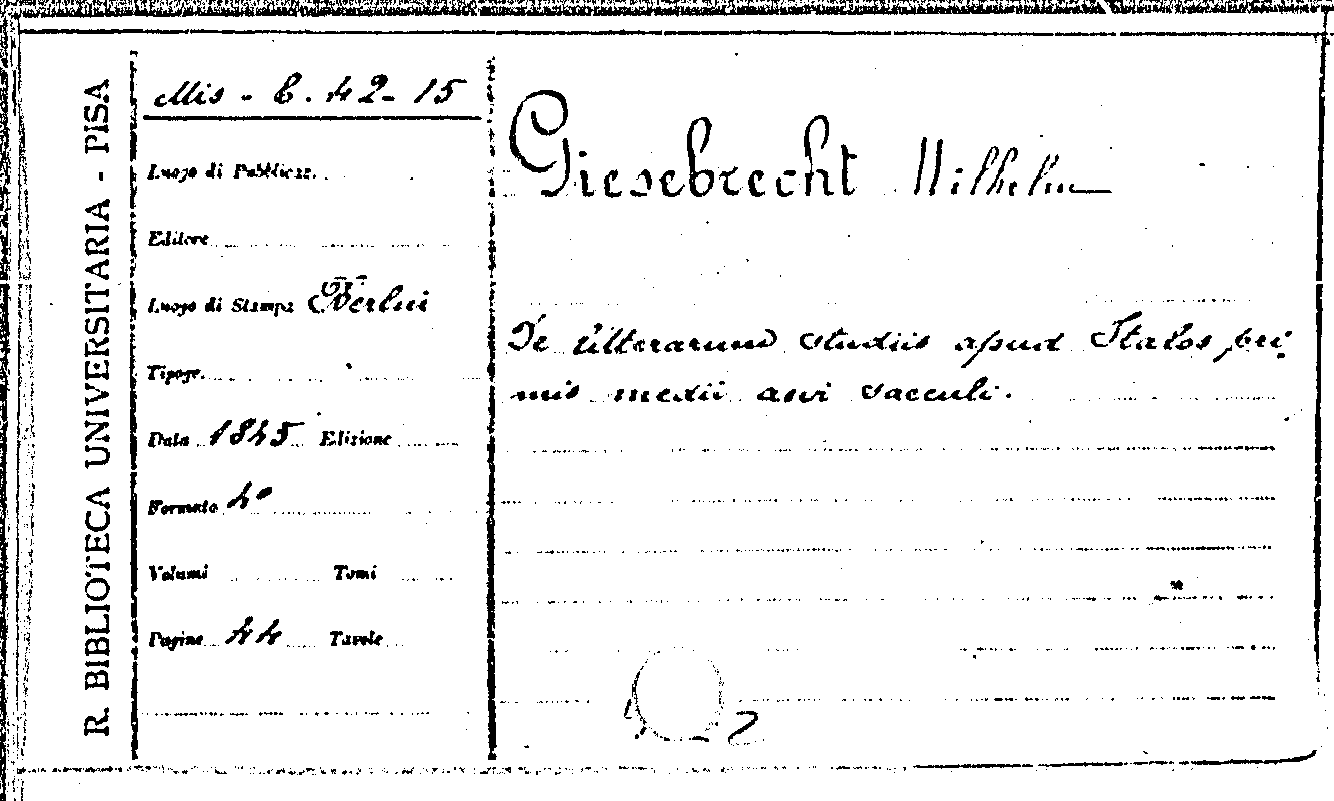 R. BIBLIOTECA UNIVERSITARIA - PISA
Mis - C. 42 - 15
Luogo di Pubblicaz.
Editore
Luogo di Stampa Berlin
Tipogr.
Data 1845 Edizione
Formato 4°
Volumi Tomi
Pagine 44 Tavole
Giesebrecht Wilhelm
De litterarum studiis apud Italos pri
mis medii aevi saeculi.